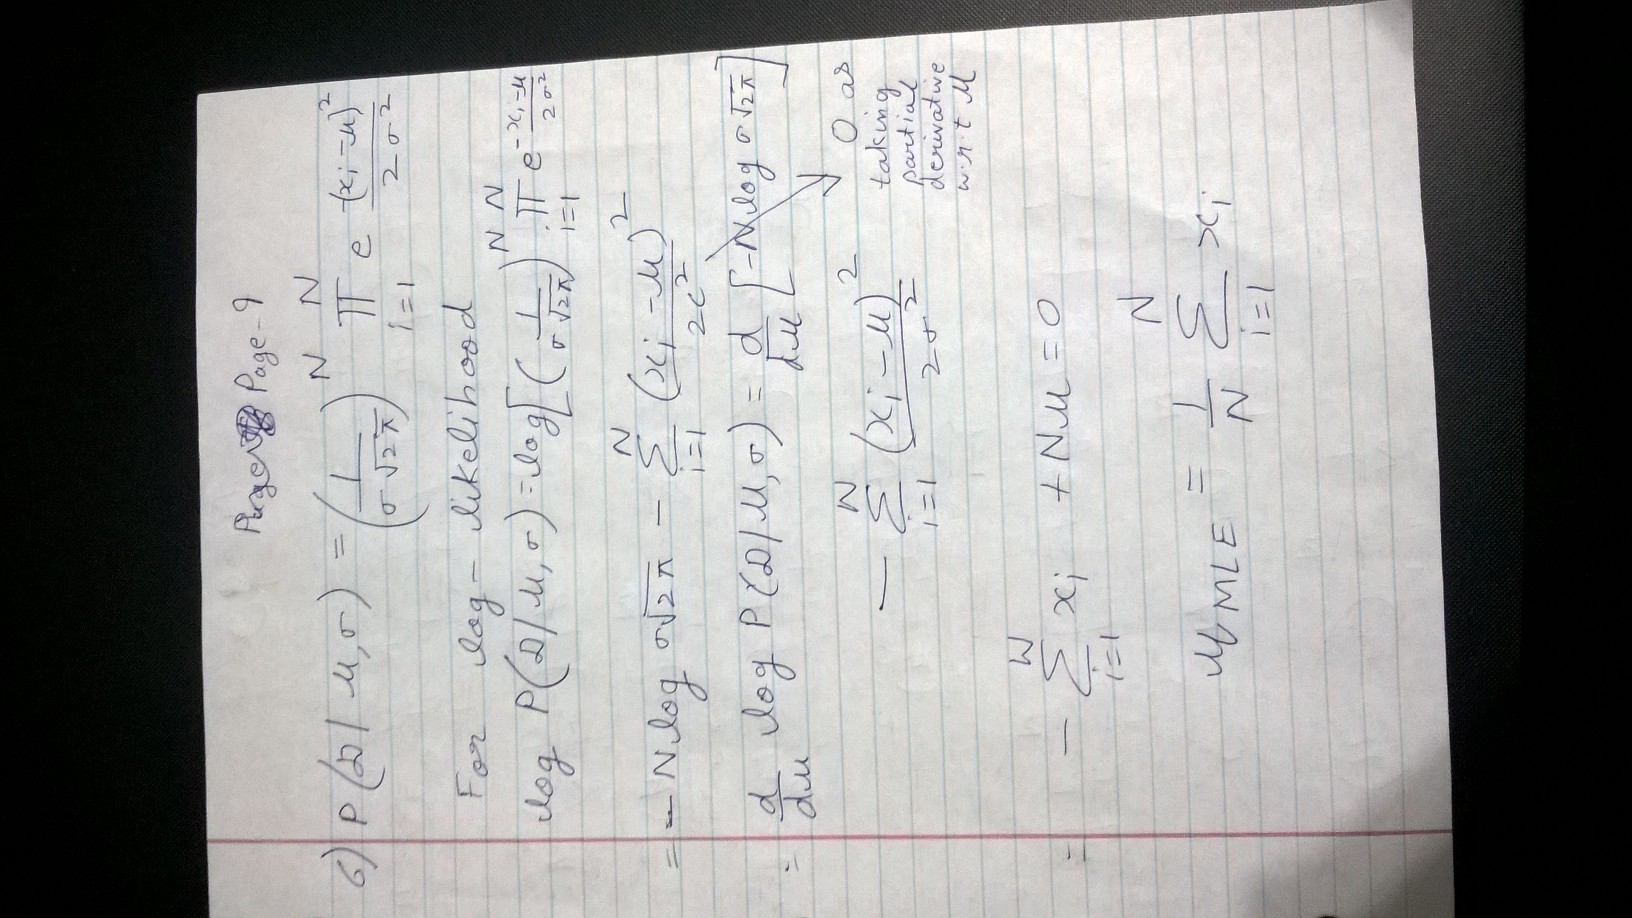 Page-9
6) P(D/μ,σ) = (1/σ√2π)^N ∏_{i=1}^{N} e^{-(xi-μ)^2/2σ^2}
For log-likelihood
log P(D/μ,σ) = log[(1/σ√2π)^N . ∏_{i=1}^{N} e^{-xi-μ/2σ^2}
= - N log σ√2π - ∑_{i=1}^{N} (xi-μ)^2/2σ^2
= d/dμ log P(D/μ,σ) = d/dμ [-N log σ√2π]
0 as
taking
partial
derivative
w.r.t μ
- ∑_{i=1}^{N} (xi-μ)^2/2σ^2
= - ∑_{i=1}^{N} xi + Nμ = 0
μ_MLE = 1/N ∑_{i=1}^{N} xi